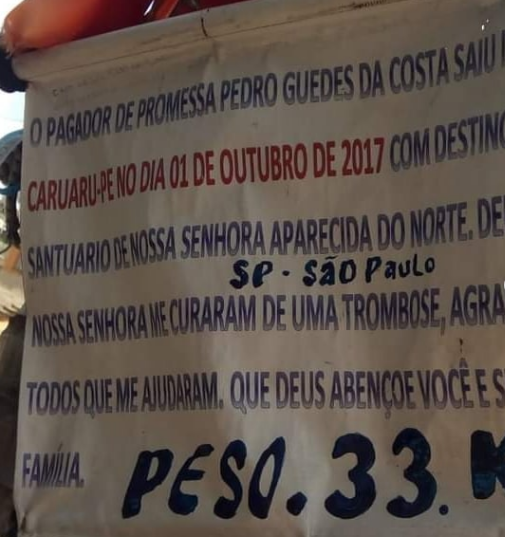 O PAGADOR DE PROMESSA PEDRO GUEDES DA COSTA SAIU
CARUARU-PE NO DIA 01 DE OUTUBRO DE 2017 COM DESTINO
SANTUARIO DE NOSSA SENHORA APARECIDA DO NORTE. DE
SP - SÃO PAULO
NOSSA SENHORA ME CURARAM DE UMA TROMBOSE, AGRA
TODOS QUE ME AJUDARAM. QUE DEUS ABENÇOE VOCÊ E S
FAMÍLIA.
PESO. 33. K